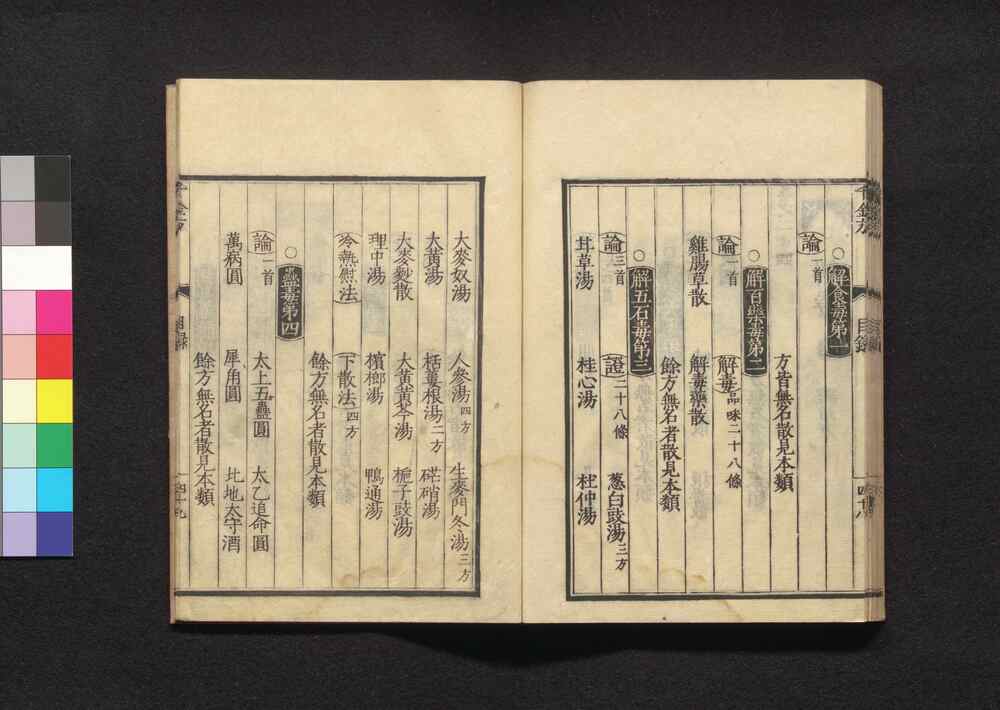 千金方 目録 四十八
○解食毒第一
論一首
方皆無名散見本類
○解百藥毒第二
論一首 解毒品味二十八條
雞腸草散 解毒藥散
餘方無名者散見本類
○解五石毒第三
論三首 證二十八條 葱白豉湯三方
茸草湯 桂心湯 杜仲湯
大麥奴湯 人參湯四方 生麥門冬湯三方
大黃湯 栝蔞根湯二方 硭硝湯
大麥麨散 大黃黃芩湯 梔子豉湯
理中湯 檳榔湯 鴨通湯
冷熱慰法 下散法四方
餘方無名者散見本類
○蠱毒第四
論一首 太上五蠱圓 太乙追命圓
萬病圓 犀角圓 北地太守酒
餘方無名者散見本類
千金方 目録 四十九